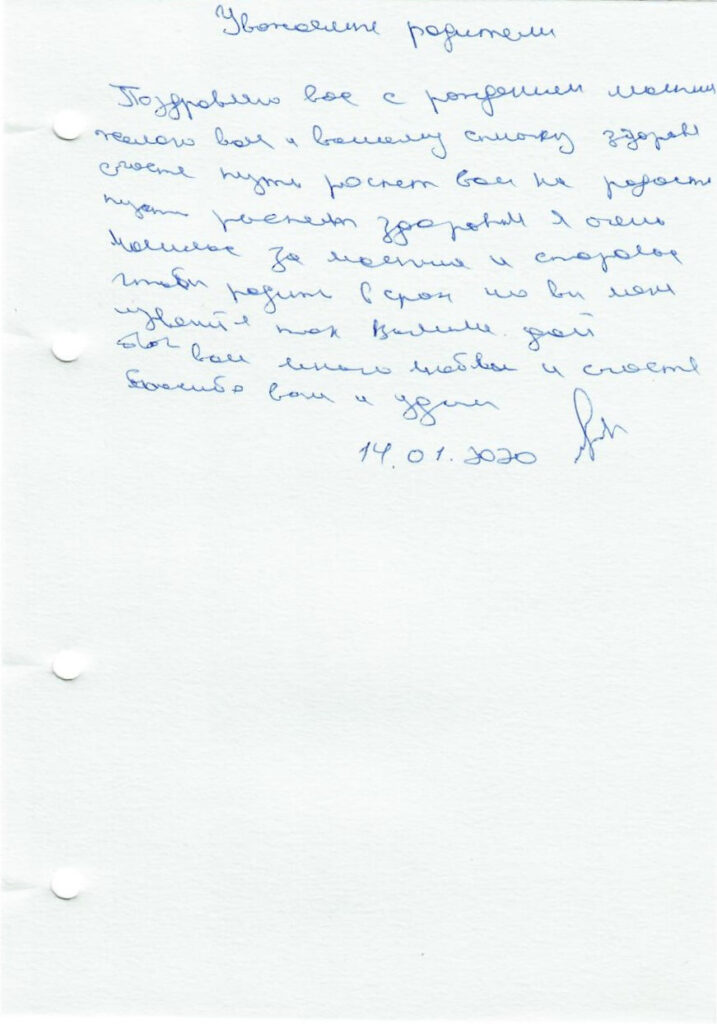 Уважаемие родители
Поздровляю вас с рождением малиша
желаю вам и вашему синочку здоров
счастя пусть ростет вам на радость
пусть ростет здоровим я очень
молилас за малиша и старалас
чтоби родить в срок но ви мен
извените так вишли дай
бог вам много любви и счастя
Спасибо вам и удачи
14.01.2020